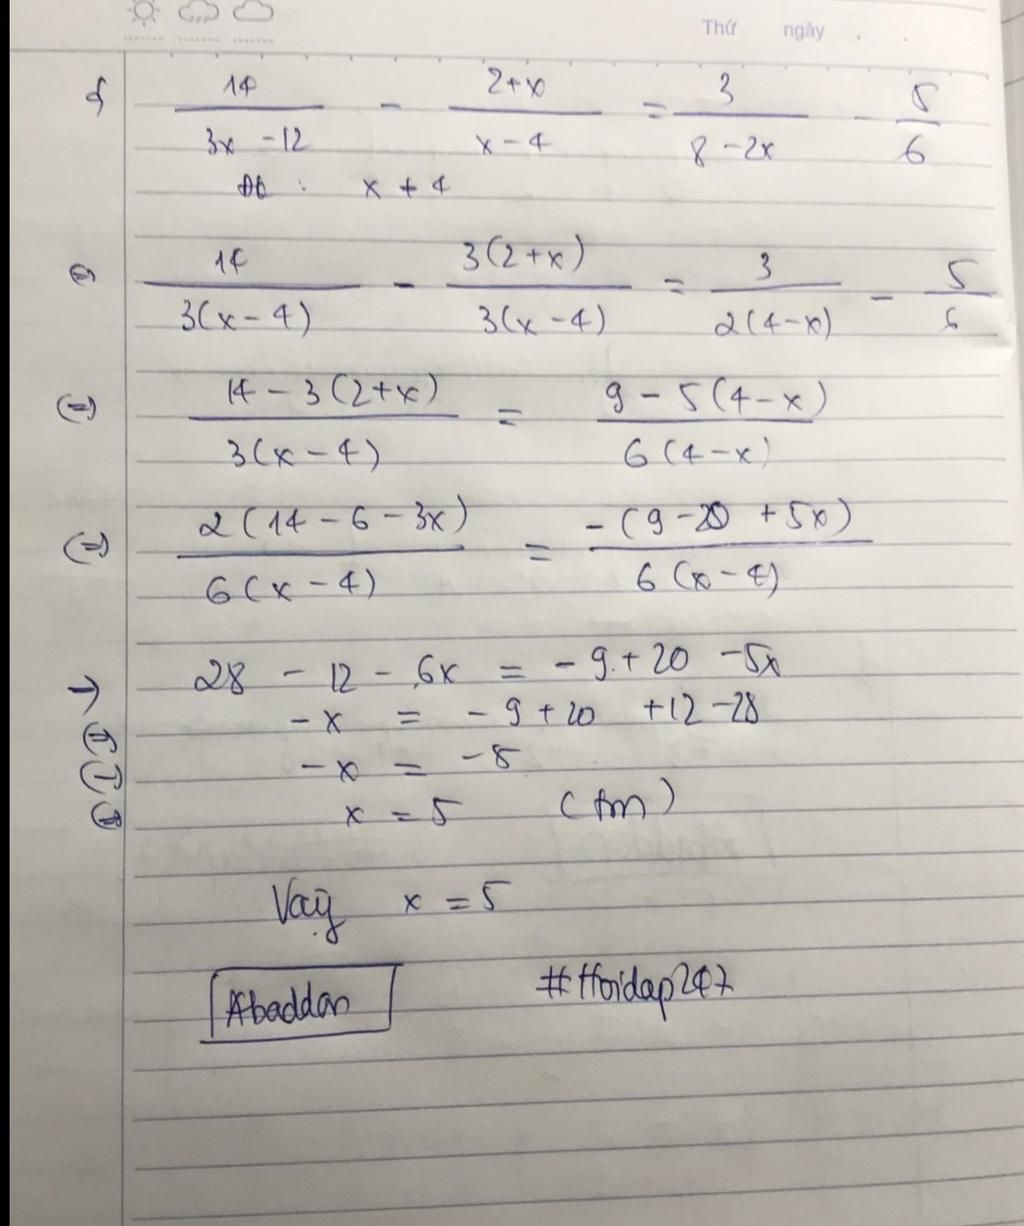 Thứ ngày . .
f 14/(3x - 12) - (2+x)/(x - 4) = 3/(8 - 2x) - 5/6
Đk : x ≠ 4
(=) 14/(3(x - 4)) - 3(2+x)/(3(x - 4)) = 3/(2(4-x)) - 5/6
(=) (14 - 3(2+x))/(3(x - 4)) = (9 - 5(4-x))/(6(4-x))
(=) 2(14 - 6 - 3x)/(6(x - 4)) = -(9-20 + 5x)/(6(x-4))
→ 28 - 12 - 6x = -9 + 20 - 5x
(=) -x = -9 + 20 + 12 - 28
(=) -x = -5
(=) x = 5 (tm)
Vậy x = 5
Abaddon #Hoidap247